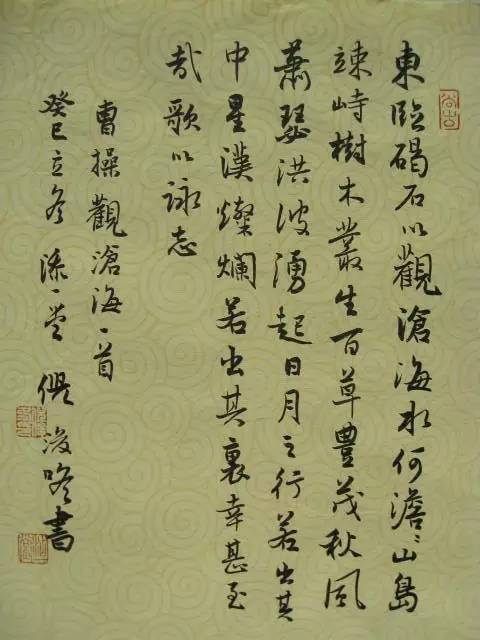 尚古
東臨碣石以觀滄海水何澹〻山島
竦峙樹木叢生百草豊茂秋風
蕭瑟洪波湧起日月之行若出其
中星漢燦爛若出其裏幸甚至
哉歌以詠志
曹操觀滄海一首
癸巳立冬書